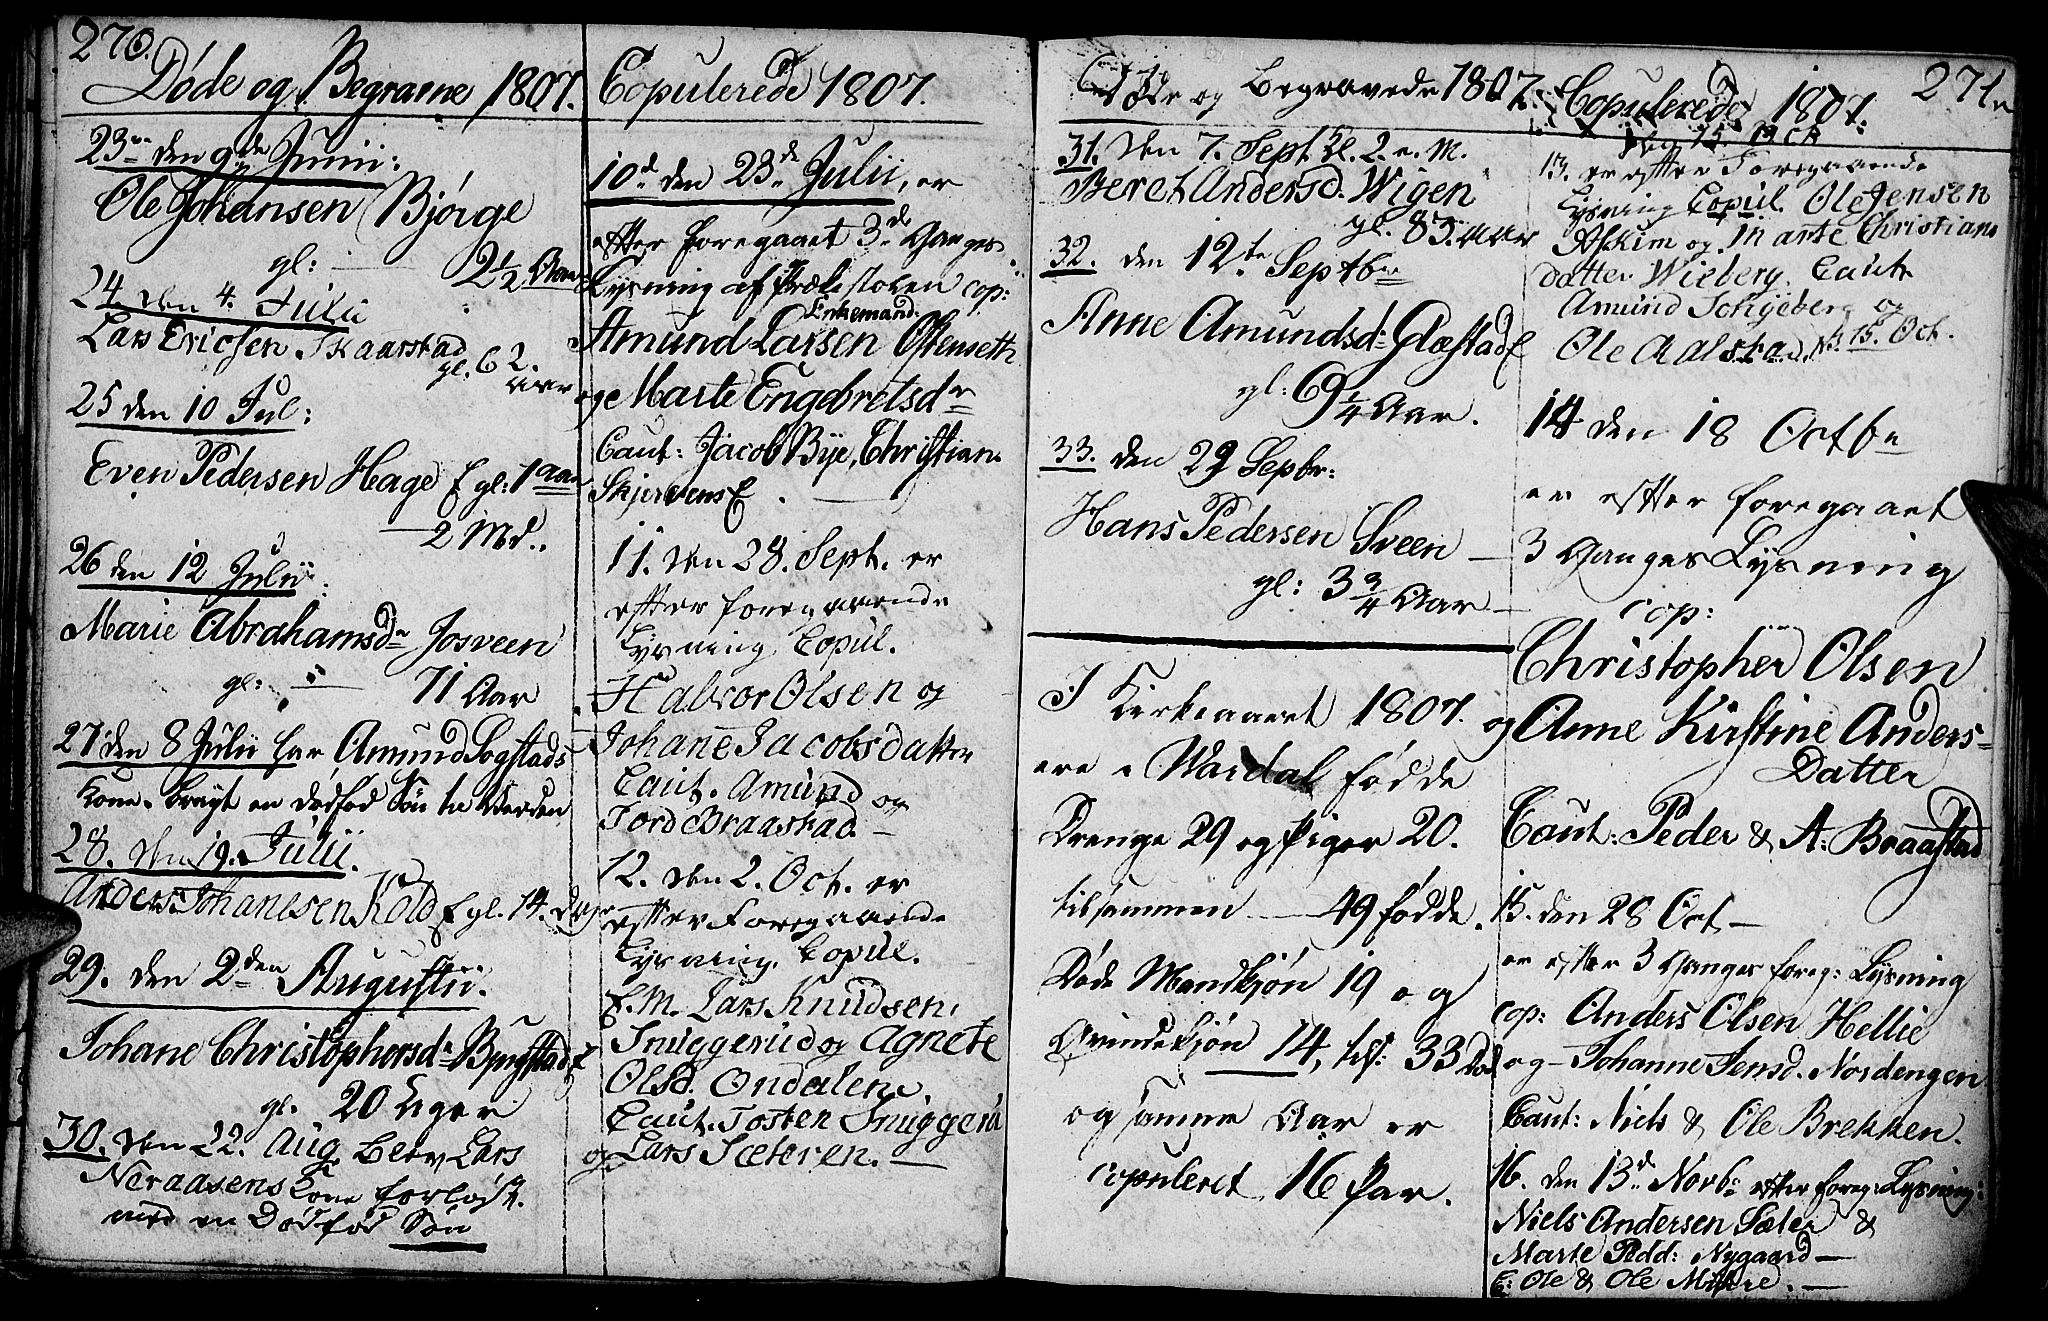 270.
Døde og Begravne 1807.
23 den 9de Junii:
Ole Johansen Bjørge
gl: 2 1/2 Aar
24 den 4. Julii
Lars Ericsen Skaarstad
gl. 62.
aar
25 den 10 Jul:
Even Pedersen Hage gl: 1 aar
2 Md.
26 den 12 Julii
Marie Abrahamsdr Josveen
gl: 71 Aar
27 den 8 Julii har Amund Sogstads
Kone bragt en dødfød Søn til Verden
28. den 19. Julii.
Anders Johannesen Kold gl. 14. Dage
29. den 2den Augustii.
Johane Christophersdr
gl. 20 Uger
30. den 22. Aug. blev Lars
Neraasens Kone forløst
med en Dødfød Søn
Copulerede 1807.
10d den 23de Julii, er
efter foregaaet 3de Ganges
Lysning af Prækestolen cop:
Enkemand:
Amund Larsen Ostenseth
oge Marte Engebretsdr
Caut: Jacob Bye, Christian
11. den 28. Sept. er
efter foregaaende
Lysning Copul.
Halvor Olsen og
Johane Jacobsdatter
Caut. Amund og
Tord Braastad
12. den 2. Oct. er
efter Foregaaende
Lysning Copul.
E.M. Lars Knudsen
Snuggerud og Agnete
Olsd. Ondalen
Caut. Tosten Snuggerud
og Lars Sæteren.
Døde og Begravede 1807.
31. den 7. Sept.
Beret Andersd. Wigen
gl. 83. Aar
32. den 12te Septbr
Anne Amundsd: Glæstad
gl: 69 1/4 Aar.
33. den 29 Sepbr:
Hans Pedersen Sveen
gl: 3 3/4 Aar
I Kirkeaaret 1807.
ere i Wardal fødde
Drenge 29 og Piger 20.
tilsammen 49 fødde.
Døde Mandkjøn 19 og
Qvindekjøn 14, til: 33 Død
og samme Aar er
copuleret 16 Par.
271
Copulerede 1807.
13. er efter Foregaaende
Lysning Copul. Ole Jensen
Askim og Marte Christians
datter Wieberg. Caut.
Amund Schjeberg og
Ole Aalstad. 15. Oct.
14 den 18 Octbr
er efter foregaaet
3 Ganges Lysning
cop:
Christopher Olsen
og Anne Kirstine Anders-
Datter
Caut: Peder & A: Braastad
15. den 28 Oct
er efter 3 Ganges foreg: Lysning
cop: Anders Olsen Hellie
og Johanne Jensd. Nordengen
Caut: Niels & Ole Brekken.
16. den 13d Novb: efter foreg: Lysning:
Niels Andersen Sæter &
Marte Pedd: Nygaard
C: Ole & Ole